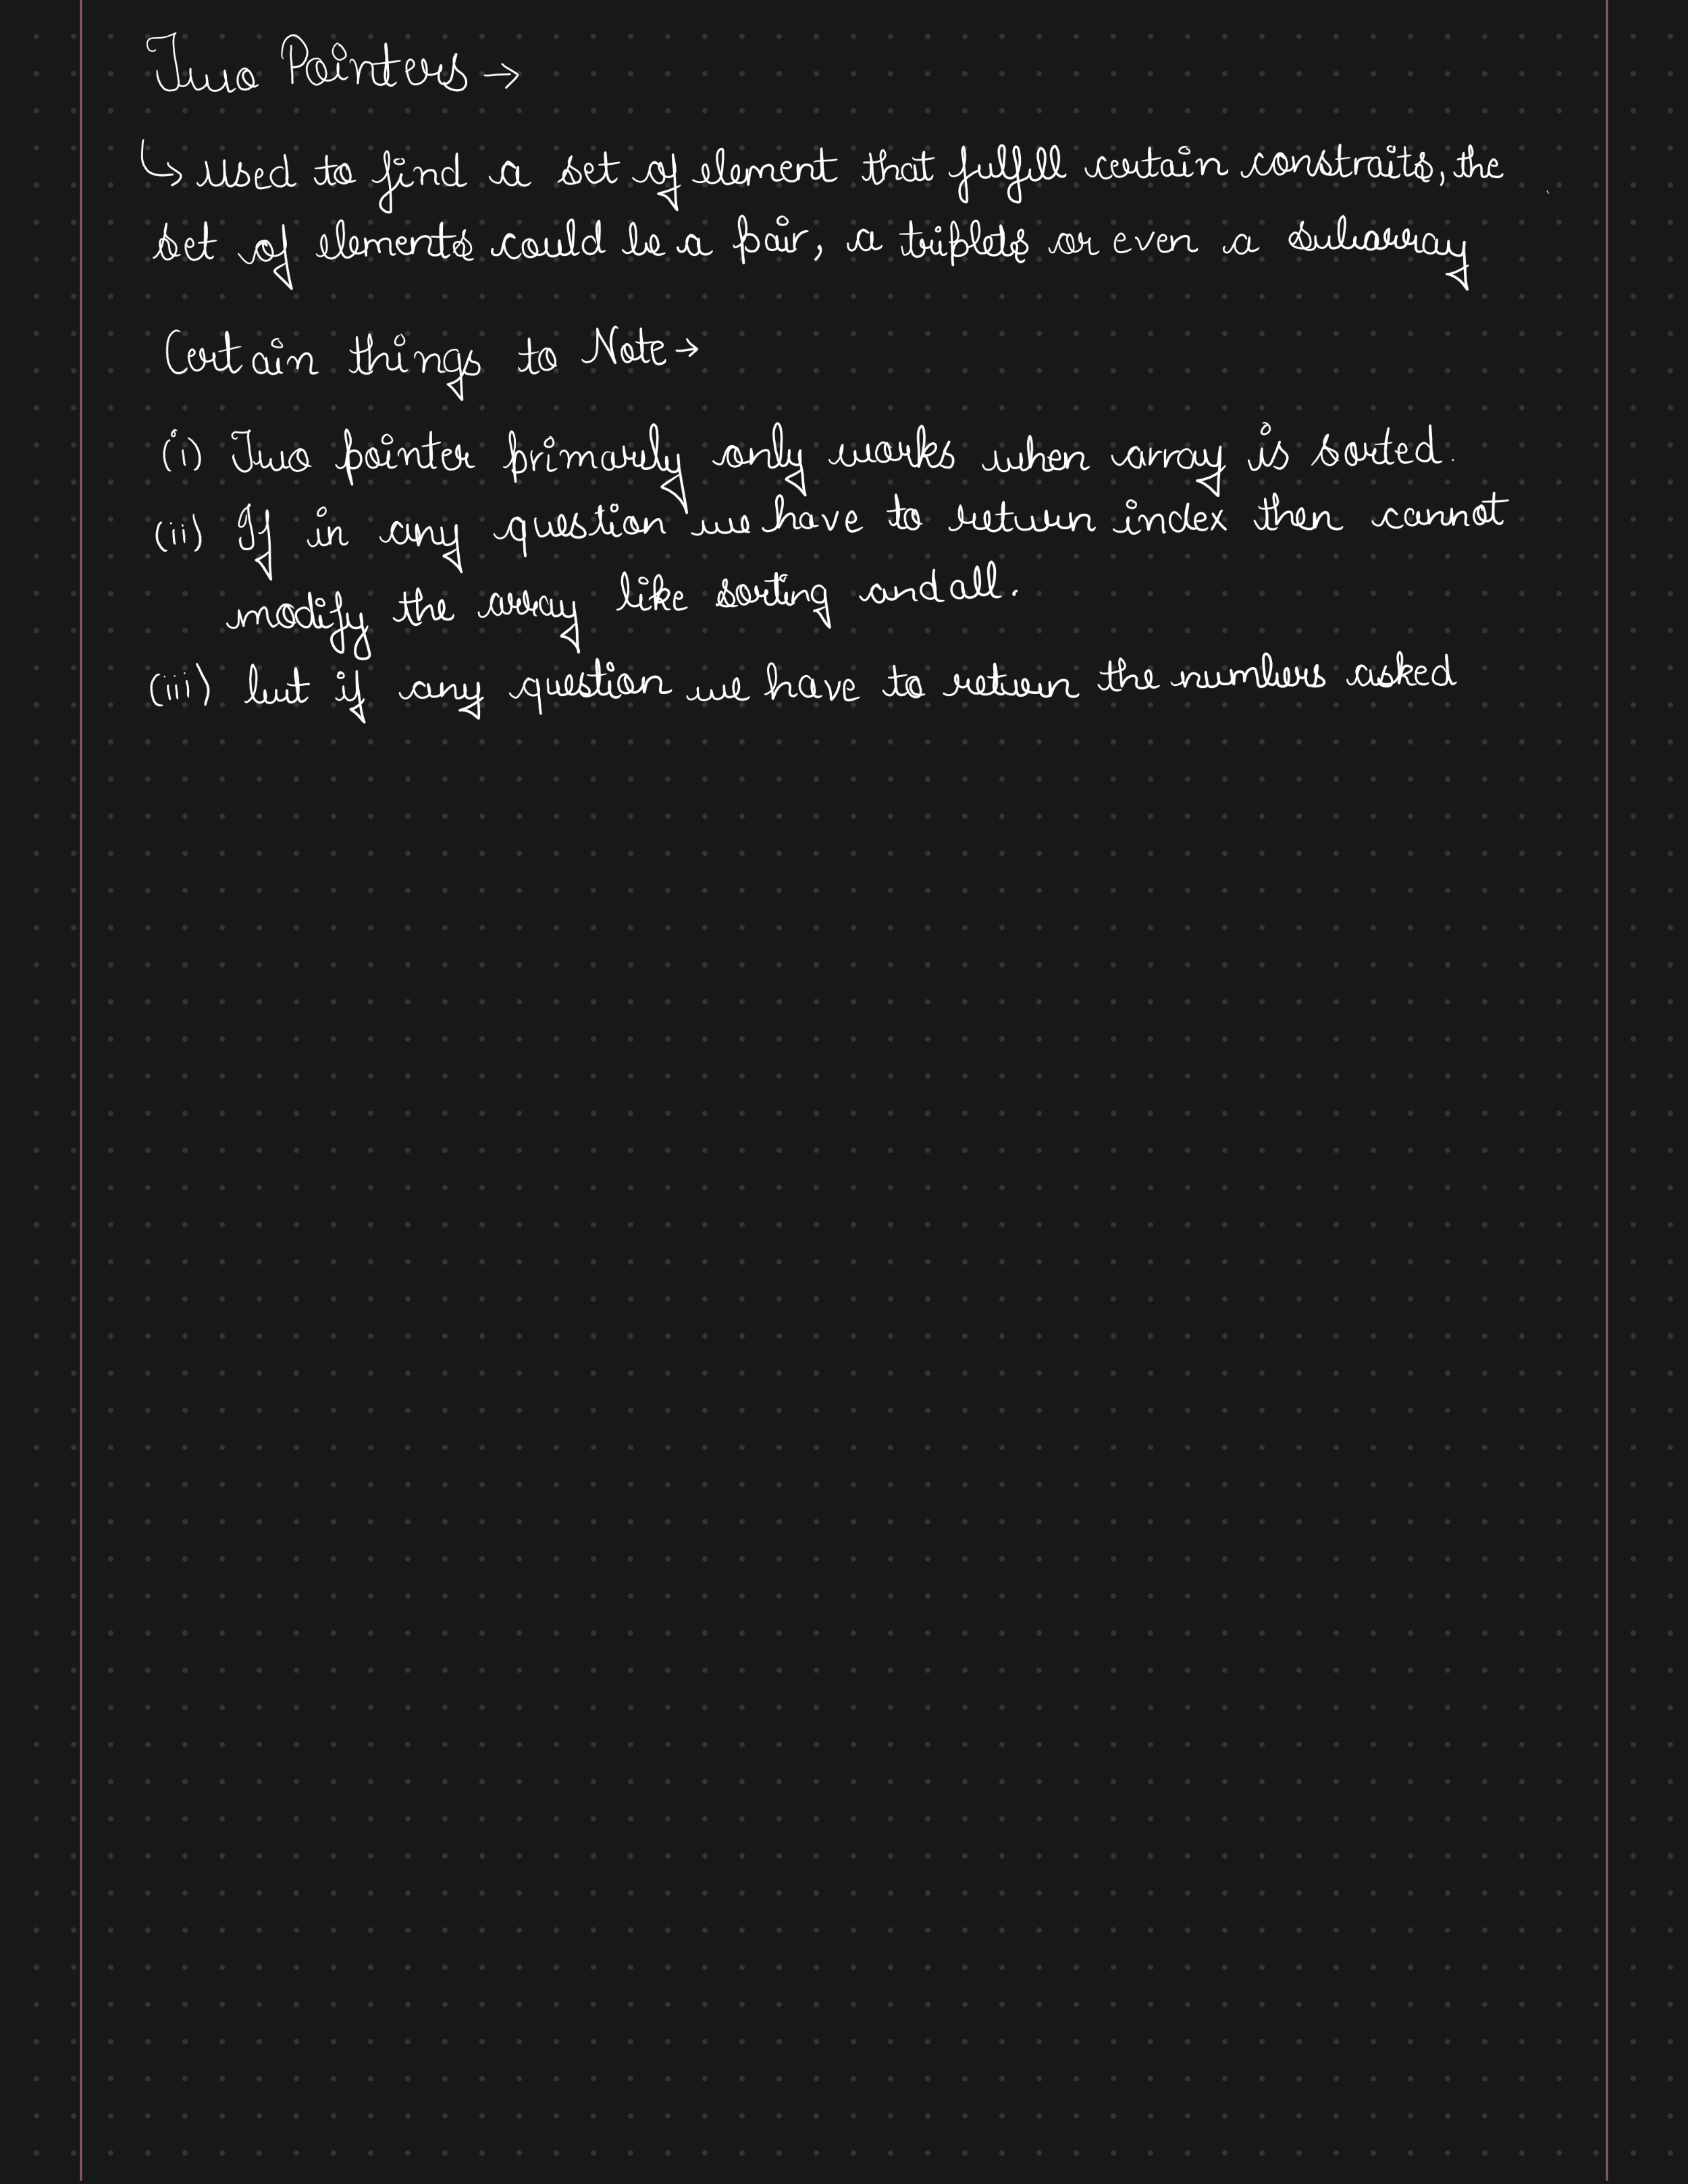 Two Pointers →
↳ used to find a set of element that fulfill certain constraits, the
set of elements could be a pair, a triplets or even a subarray
Certain things to Note →
(i) Two pointer primarily only works when array is sorted.
(ii) If in any question we have to return index then cannot
modify the array like sorting and all.
(iii) but if any question we have to return the numbers asked